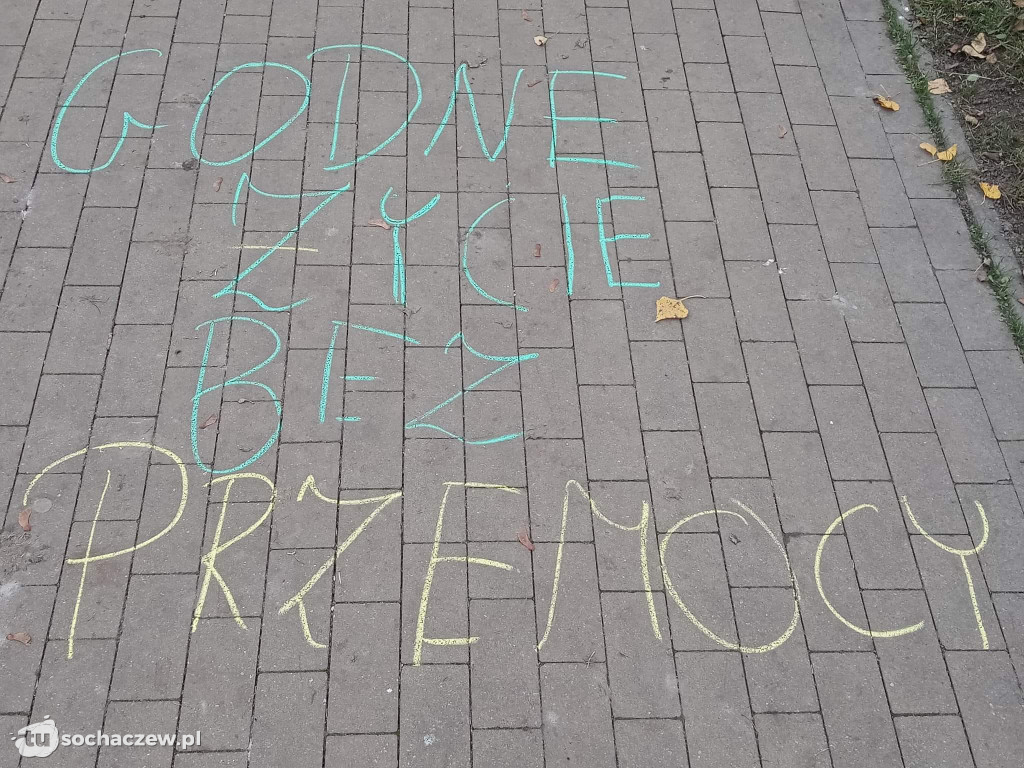 GODNE
ŻYCIE
BEZ
PRZEMOCY
tusochaczew.pl